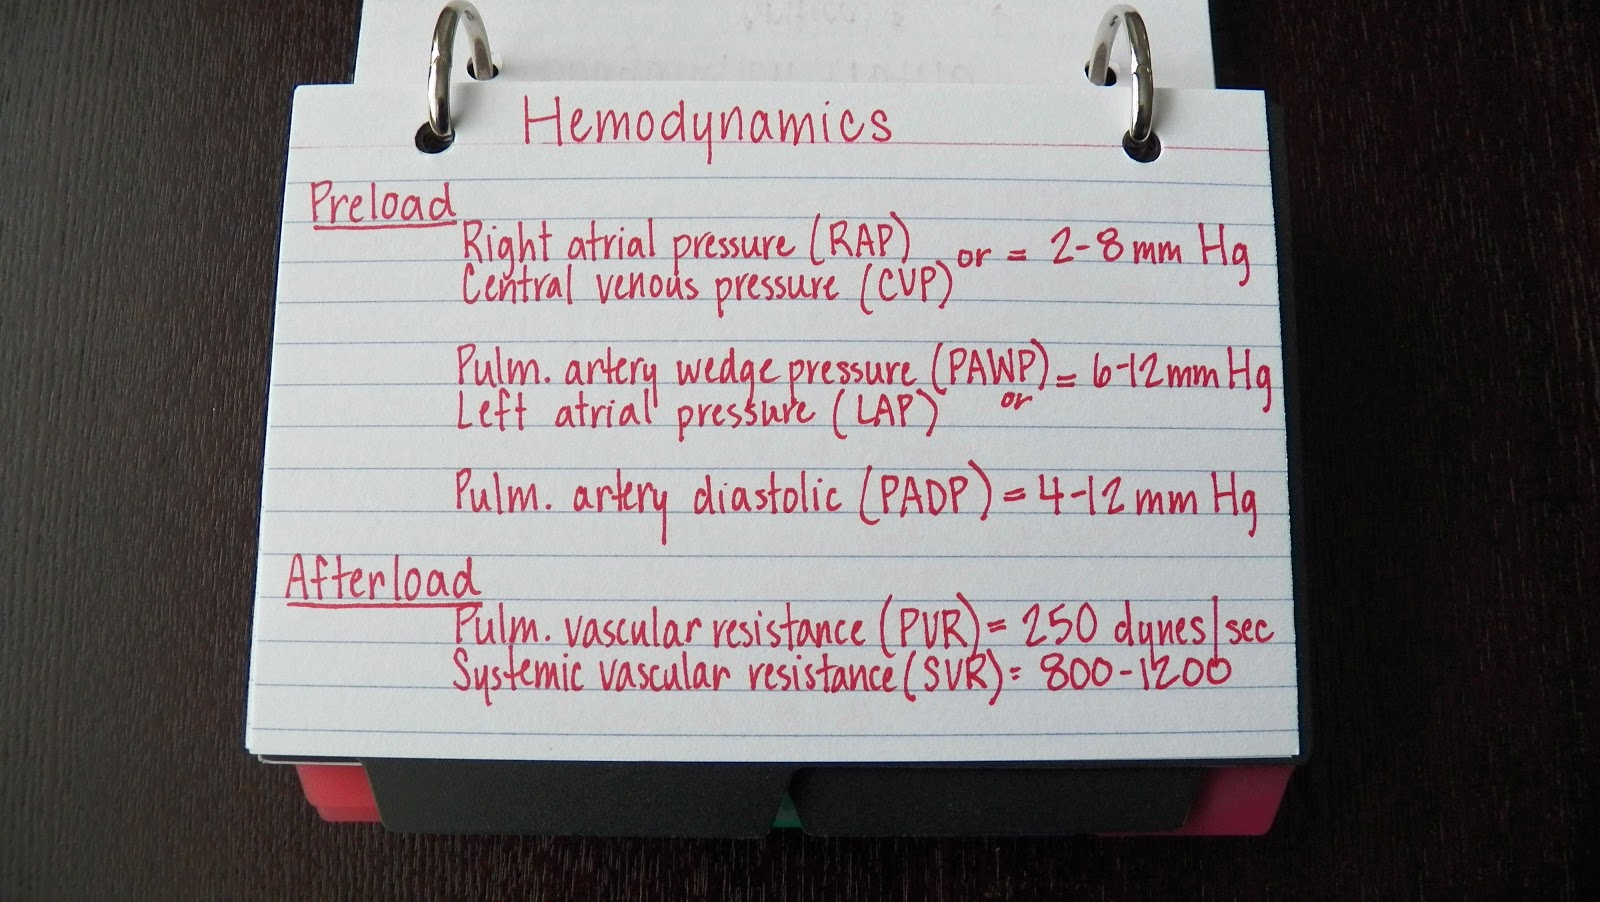 Hemodynamics
Preload
Right atrial pressure (RAP) or = 2-8 mm Hg
Central venous pressure (CVP)
Pulm. artery wedge pressure (PAWP) = 6-12 mm Hg
Left atrial pressure (LAP) or
Pulm. artery diastolic (PADP) = 4-12 mm Hg
Afterload
Pulm. vascular resistance (PVR) = 250 dynes/sec
Systemic vascular resistance (SVR) = 800-1200